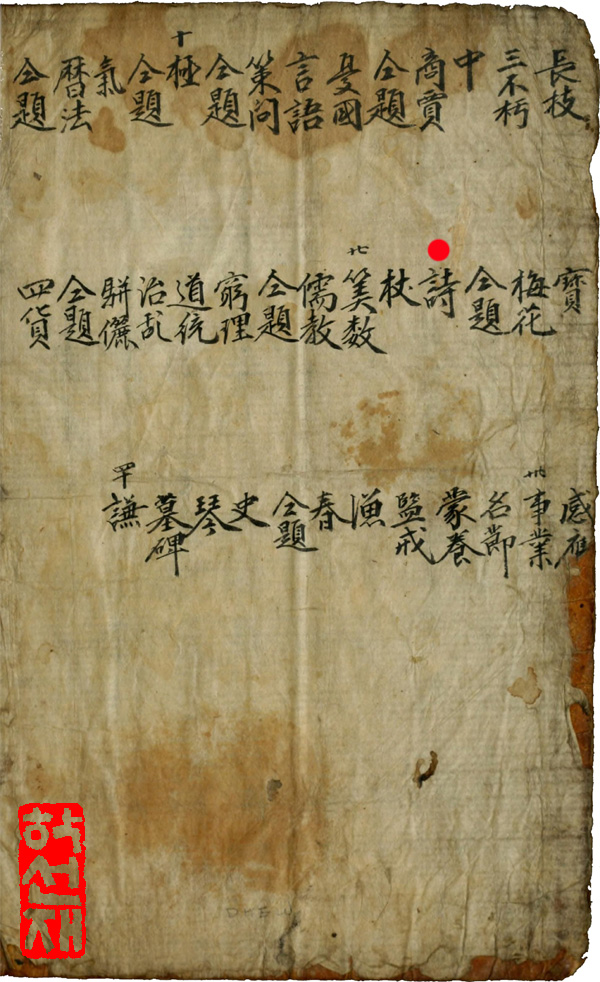 長枝
三不朽
中
商賈
仝題
憂國
言語
策問
仝題
十
極
仝題
氣
曆法
仝題
寶
梅花
仝題
詩
杖
廿
筭数
儒教
仝題
窮理
道統
治乱
騈儷
仝題
四貨
感應
卅
事業
名節
蒙養
監戒
漁
春
仝題
史
琴
墓碑
四十
謙
하선재